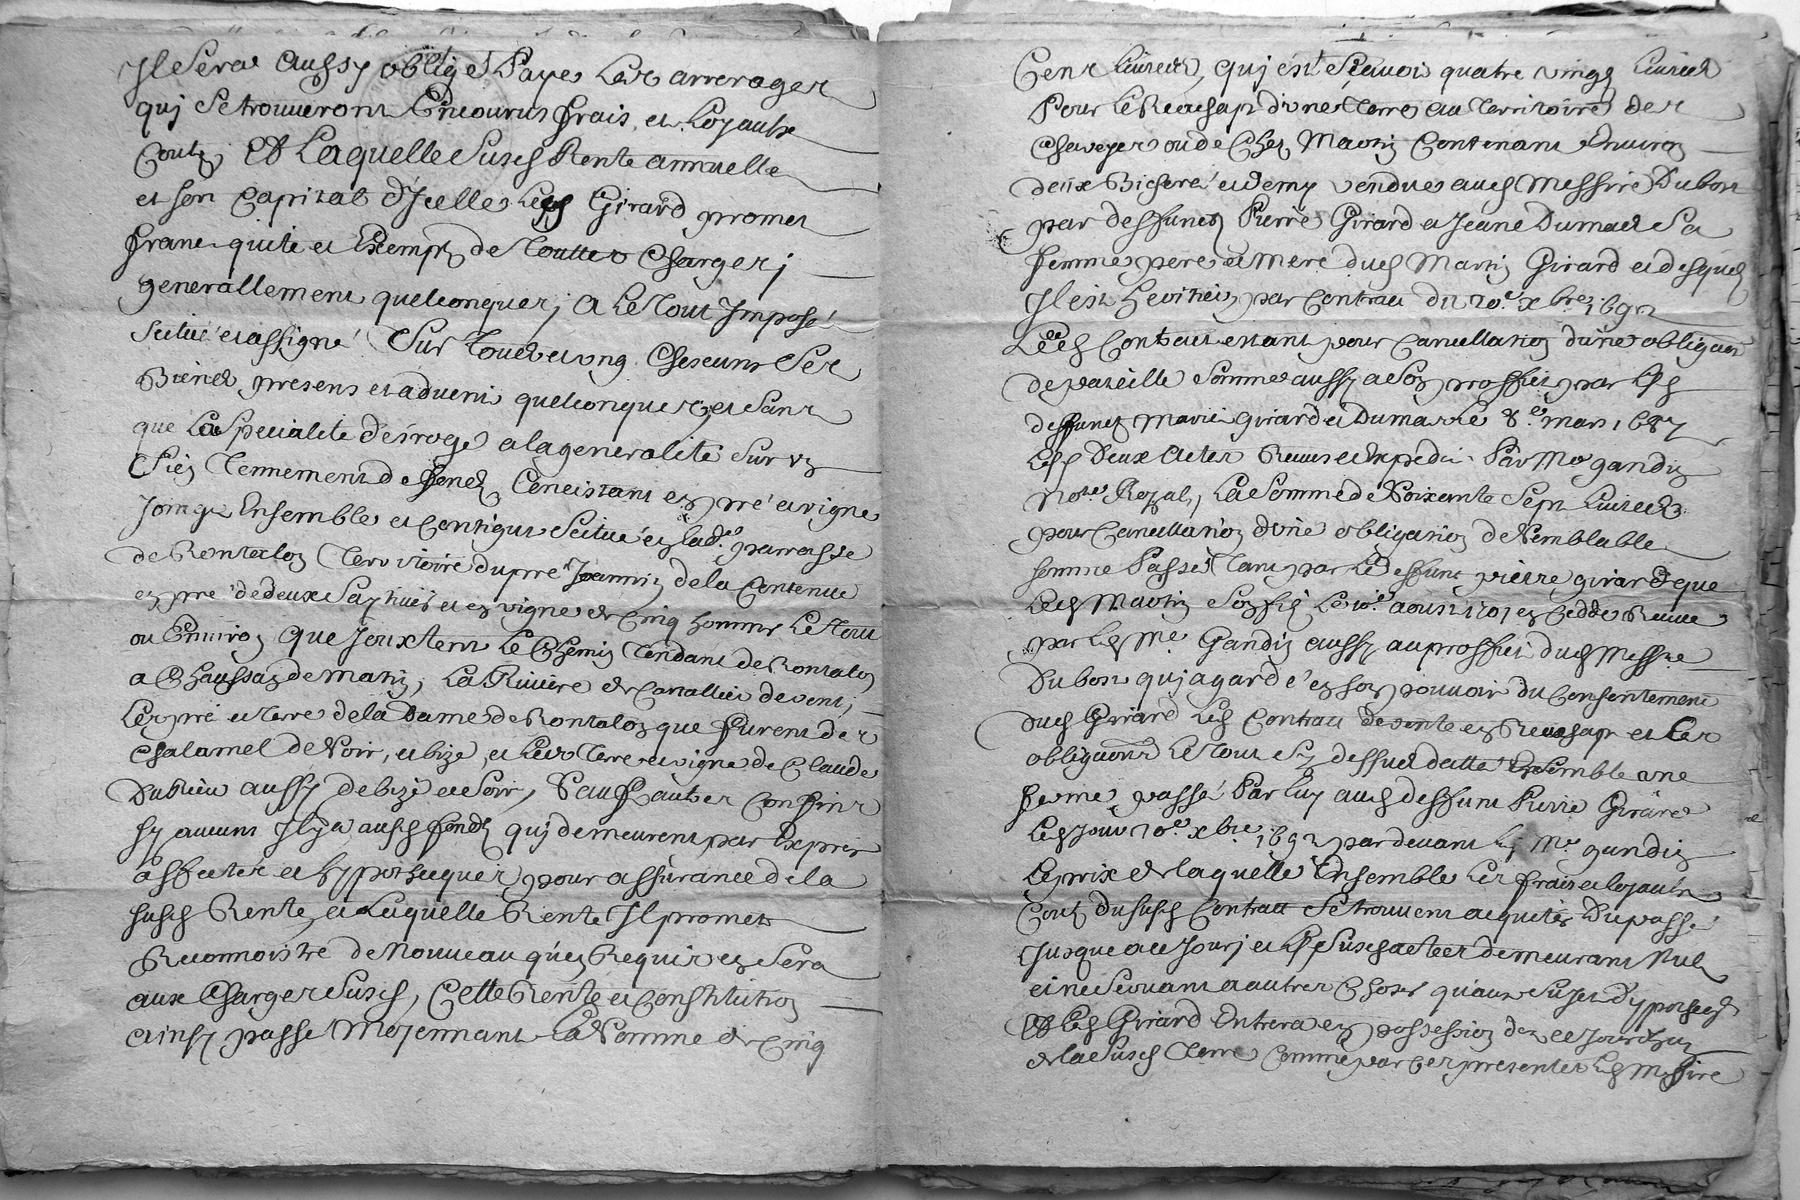 Il sera aussy obligé Payer Les arrerages
quj se trouueront Encourus frais, et Loyaulx
Couts, Et Laquelle susd Rente annuelle
et son Capital d'Icelle Led Girard promet
franc quite et Exempt de touttes Charges j
generallement quelconques j A le tout Imposé
scitué et assigné Sur touts et ung Chescuns ses
Biens presens et aduenir quelconques, et sans
que La specialité desroge a la generalité Sur vn
Sien tennement de fonds Consistant en pré et vigne
Joings Ensemble et Contigus scitué en lad.e parroisse
de Rontalon territoire du pré Joannin de la Contenue
en pré de deux et en vigne de Cinq hommes Le tout
ou Enuiron que Jouxtent Le Chemin tendant de Rontalon
a Chaussan de matin, La Riuiere de Cartallier de vent,
Les pré et terre de la Dame de Rontalon que furent des
Chalamel de soir, et bize, et Les terre et vigne de Claude
Dublieu aussy de bize et soir, Sauf autres Confins
sy aucuns Il y a ausd fonds quj demeurent par Exprès
affectés et hypothequés pour assurance de la
susd Rente, et Laquelle Rente Il promet
Reconnoistre de Nouueau qu'en Requis en sera
aux Charges susd, Cette Rente et Constitution
ainsy passé Moyennant La Somme de Cinq
Cent Liures, quj est Sçauoir quatre vingt Liures
Pour Le Reachapt d'vne terre au territoire des
ou de Chez Martin Contenant Enuiron
deux Bicherés et demy vendues aud Messire Dubost
par deffunts Pierre Girard et Jeane Dumas Sa
femme pere et mere dud Martin Girard et desquels
Il est heritier par Contrat du 20.e xbre 1692
Led Contrat estant pour Cancellation d'une obligation
de pareille Somme aussy a son proffict par Lesd
deffunts marié Girard et Dumas Le 8.e mars 1687
Lesd Deux Actes Receus et Expediés Par M.e gandin
No.re Royal, La Somme de Soixante Sept Liures
pour Cancellation d'vne obligation de Semblable
somme Passée tant par Led deffunt pierre girard que
Led Martin Son fils Le aoust 1701 en Cedde Receue
par Led M.e Gandin aussy au proffict dud Messire
Dubost quj a gardé en son pouuoir du Consentement
dud Girard Led Contrat de vente en Reachapt et Les
obligations Le tout Sy dessus datté Ensemble vne
ferme passé Par Luy aud deffunt Pierre Girard
Led Jour 20.e xbre 1692 pardeuant Led M.e gandin
Le prix de laquelle Ensemble Les frais et loyaulx
Couts du susd Contrat se trouuent acquités Du passé
Jusque a ce Jour j et Lesd Susd actes demeurant Nuls
et ne seruant a autres Choses qu'aux Sujet d'ypotheque
Et Led Girard Entrera en possession dez ce Jourdhuy
de la Susd terre Comme par Ces presentes Led Messire